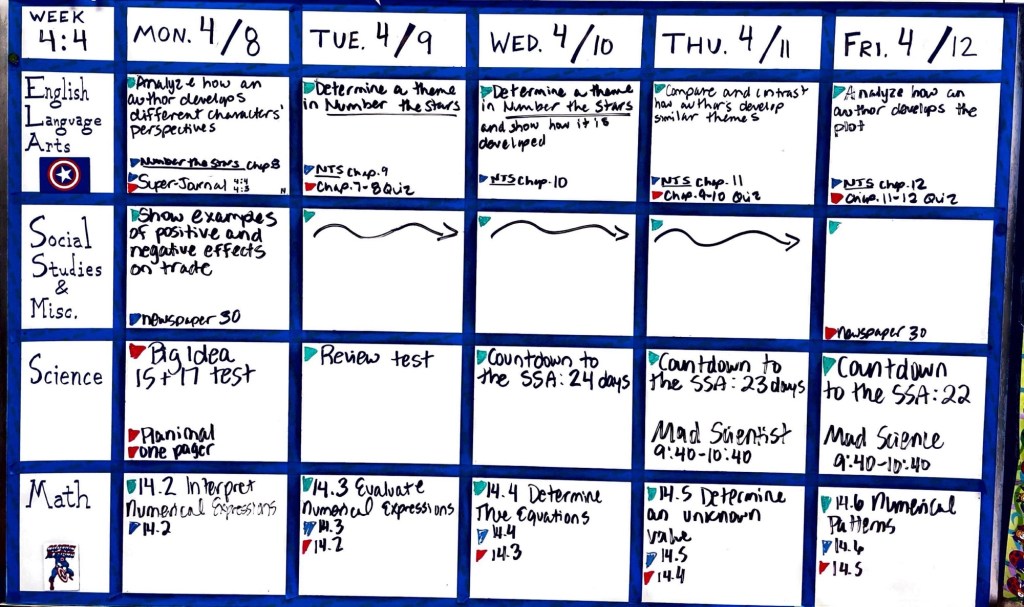 WEEK
4:4
MON. 4/8
TUE. 4/9
WED. 4/10
THU. 4/11
FRI. 4/12
English
Language
Arts
Analyze how an
author develops
different characters'
perspectives
Number the Stars Chap 8
Super-Journal 4:4
4:3
Determine a theme
in Number the Stars
NTS Chap. 9
Chap. 7-8 Quiz
Determine a theme
in Number the Stars
and show how it is
developed
NTS Chap. 10
Compare and contrast
how author's develop
similar themes
NTS Chap. 11
Chap. 9-10 Quiz
Analyze how an
author develops the
plot
NTS Chap. 12
Chap. 11-12 Quiz
Social
Studies
&
Misc.
Show examples
of positive and
negative effects
on trade
newspaper 30
newspaper 30
Science
Big Idea
15 + 17 test
Planimal
one pager
Review test
Countdown to
the SSA: 24 days
Countdown to
the SSA: 23 days
Mad Scientist
9:40-10:40
Countdown
to the SSA: 22
Mad Science
9:40-10:40
Math
14.2 Interpret
Numerical Expressions
14.2
14.3 Evaluate
Numerical Expressions
14.3
14.2
14.4 Determine
True Equations
14.4
14.3
14.5 Determine
an unknown
value
14.5
14.4
14.6 Numerical
Patterns
14.6
14.5